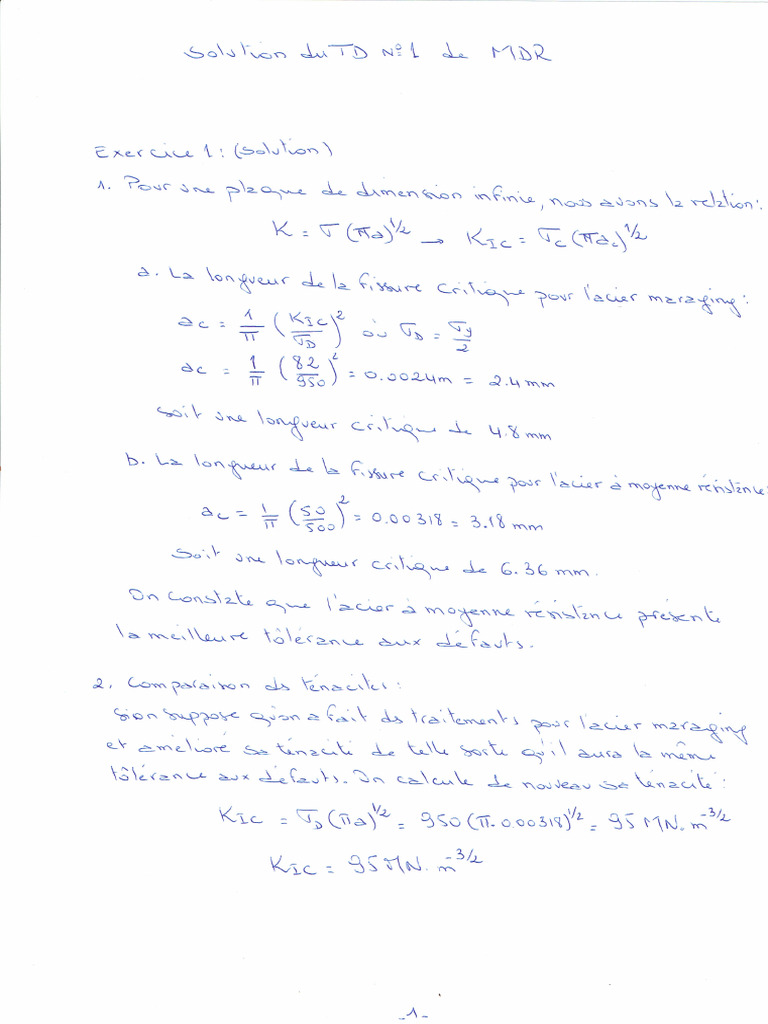 Solution du TD N°1 de MDR
Exercice 1 : (Solution)
1. Pour une plaque de dimension infinie, nous avons la relation :
K = σ (πa)^1/2 → KIC = σc (πac)^1/2
a. La longueur de la fissure critique pour l'acier maraging :
ac = 1/π (KIC/σD)^2 où σD = σy/2
ac = 1/π (82/950)^2 = 0.0024m = 2.4 mm
soit une longueur critique de 4.8 mm
b. La longueur de la fissure critique pour l'acier à moyenne résistance :
ac = 1/π (50/500)^2 = 0.00318 = 3.18 mm
Soit une longueur critique de 6.36 mm.
On constate que l'acier à moyenne résistance présente
la meilleure tôlérance aux défauts.
2. Comparaison ds ténacités :
sion suppose qu'on a fait ds traitements pour l'acier maraging
et amélioré sa ténacité de telle sorte qu'il aura la même
tôlérance aux défauts. On calcule de nouveau sa ténacité :
KIC = σD (πa)^1/2 = 950 (π. 0.00318)^1/2 = 95 MN. m^-3/2
KIC = 95 MN. m^-3/2
-1-